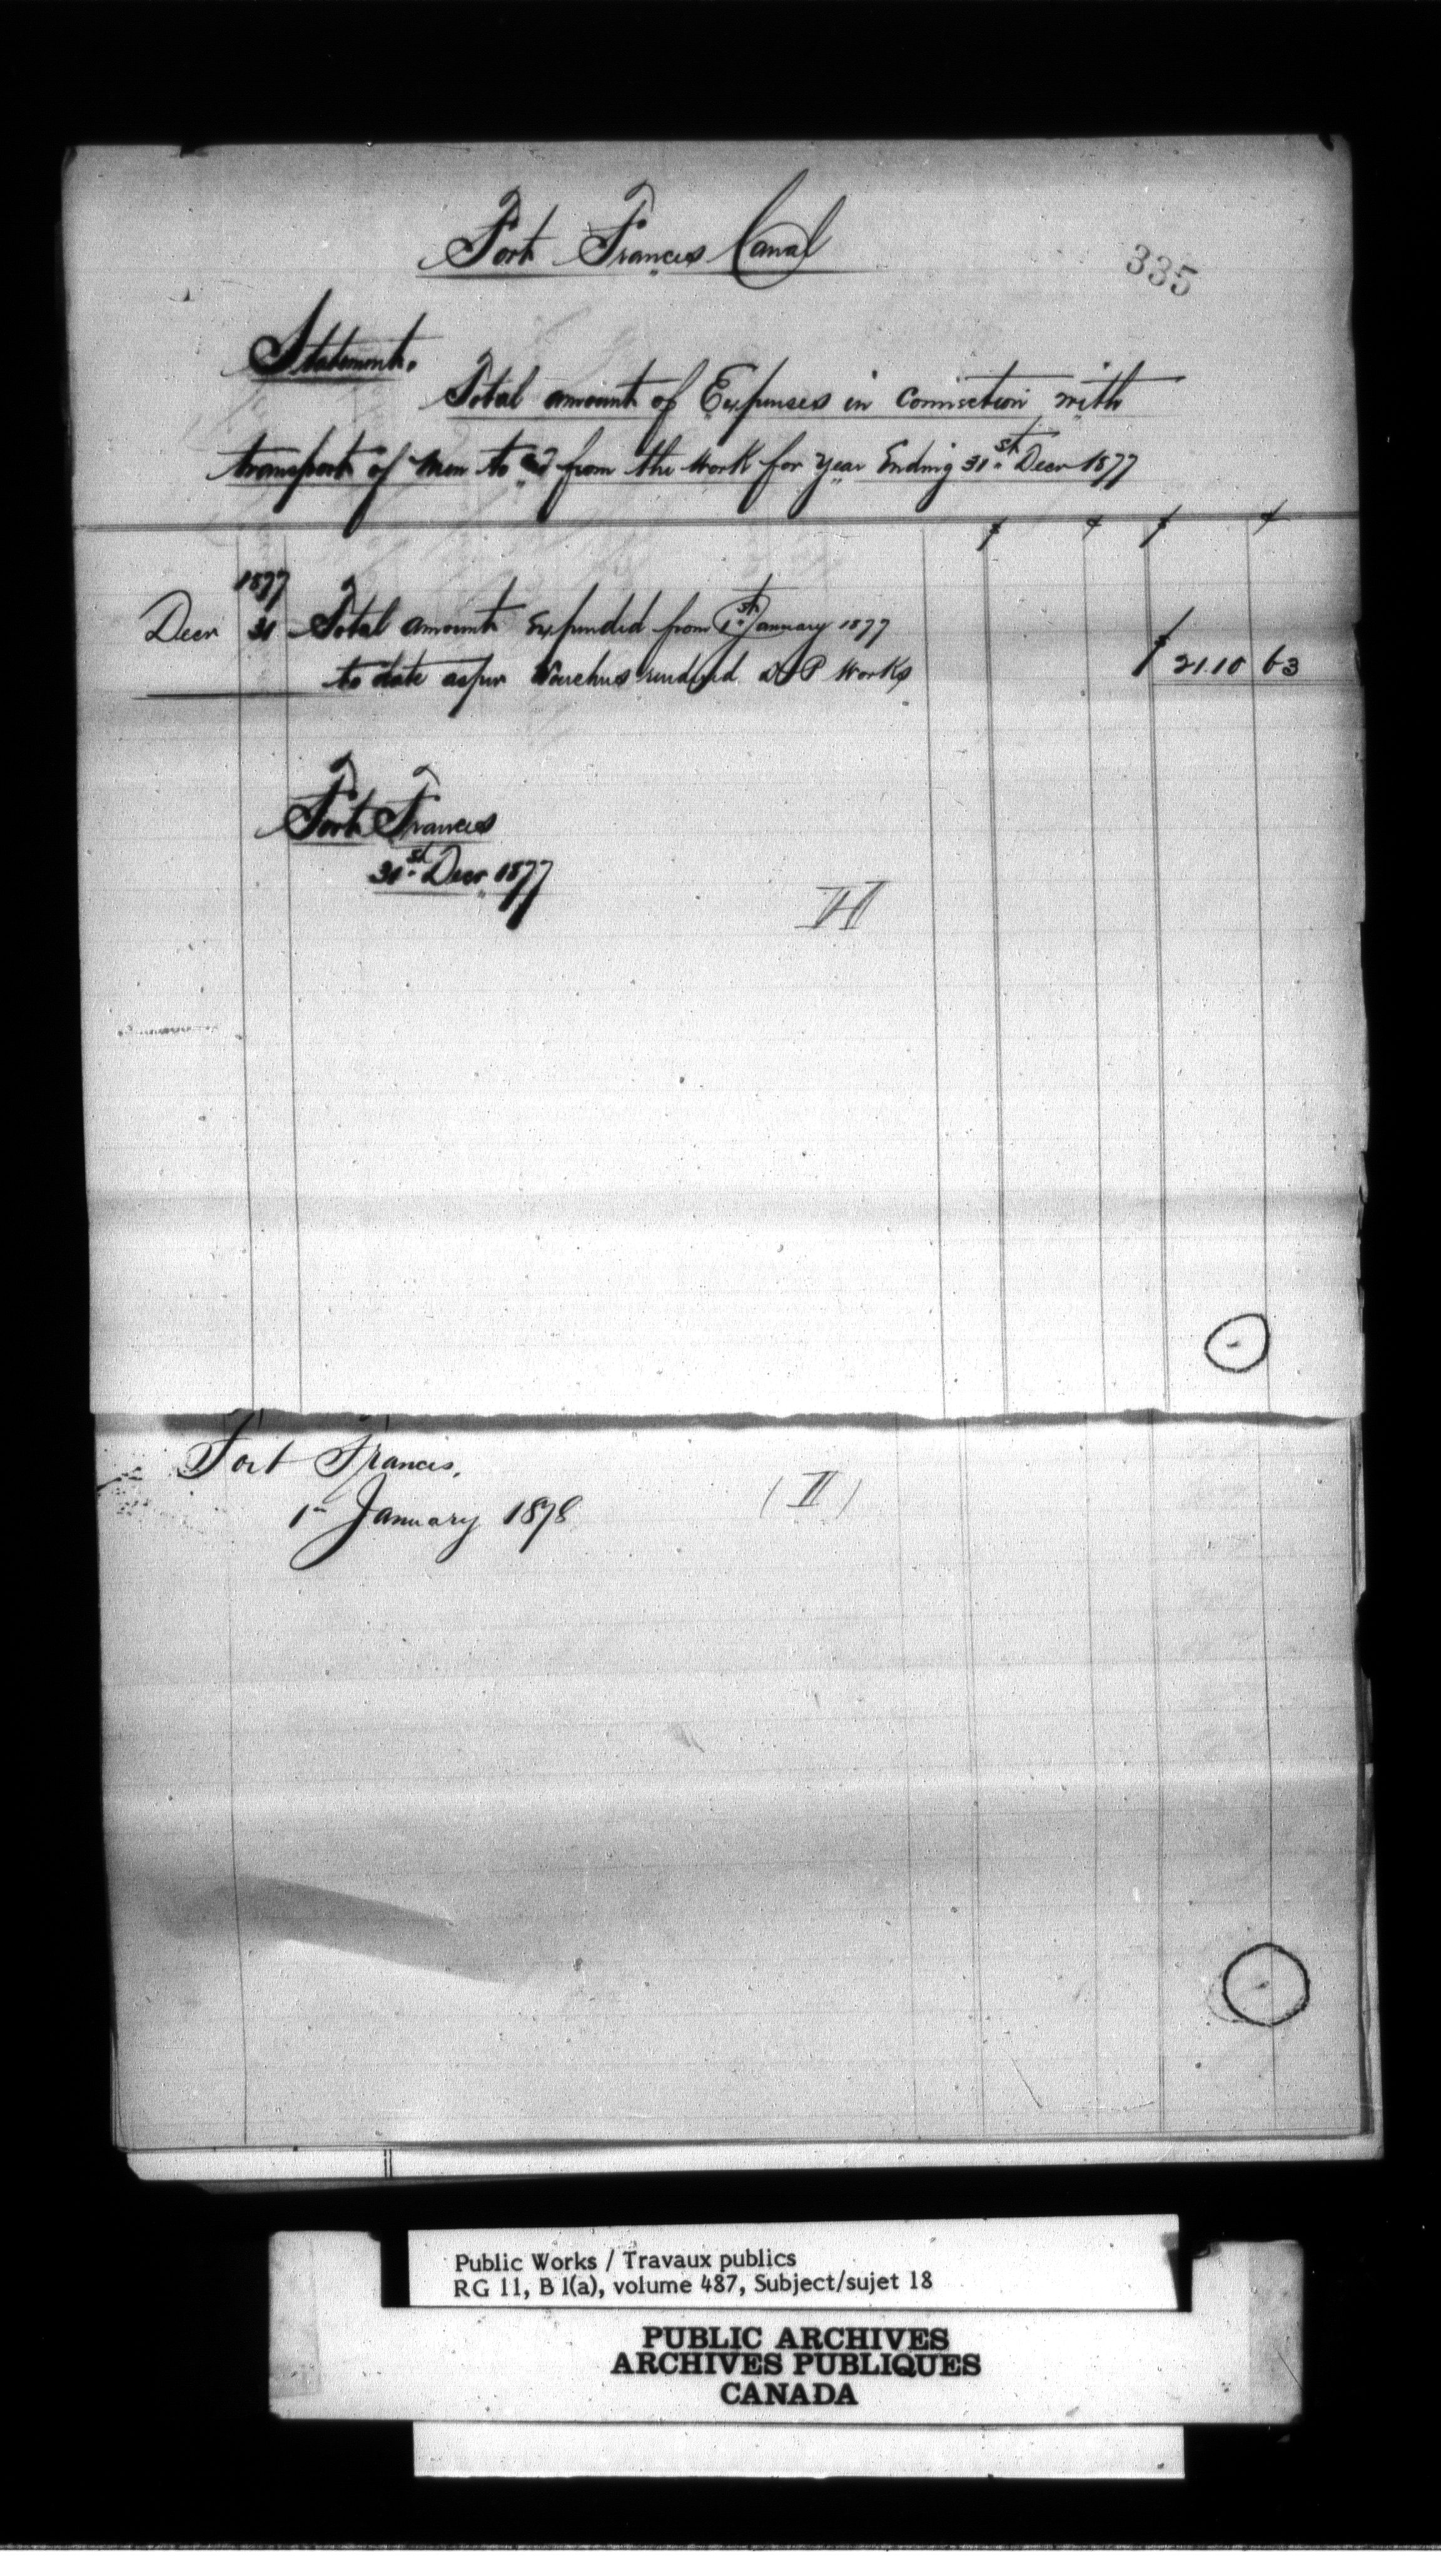 Fort Frances Canal
335
Statement.
Total amount of Expenses in connection with
transport of Men to & from the Work for Year Ending 31st Decr 1877
$ ¢ $ ¢
1877
Decr 31 Total amount Expended from 1st January 1877
to date as per Vouchers rendered D P Works $ 2110 63
Fort Frances
31st Decr 1877
H
Fort Frances.
1st January 1878
(II)
Public Works / Travaux publics
RG 11, B 1(a), volume 487, Subject/sujet 18
PUBLIC ARCHIVES
ARCHIVES PUBLIQUES
CANADA